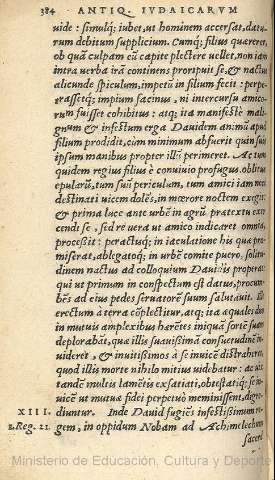 384 ANTIQ. IVDAICARVM
uide: simulq; iubet, ut hominem accersat, datu-
rum debitum supplicium. Cumq; filius quæreret,
ob quã culpam eũ capite plectere uellet, non iam
intra uerba irã continens proripuit se, & nactus
alicunde spiculum, impetũ in filium fecit: perpe-
grassetq; impium facinus, ni intercursu amico-
rum fuisset cohibitus: atq; ita manifestè mali-
gnum & infestum erga Dauidem animũ apud
filium prodidit, cùm minimum abfuerit quin suis
ipsum manibus propter illũ perimeret. Ac tum
quidem regius filius è conuiuio profugus, oblitus
epularũ, tum suũ periculum, tum amici iam mo
destinati uicem dolẽs, in mœrore noctem exigit:
& prima luce ante urbẽ in agrũ prætextu exer
cendi se, sed re uera ut amico indicaret omnia,
processit: peractisq; in iaculatione his quæ pro-
miserat, ablegatoq; in urbẽ comite puero, solitu-
dinem nactus ad colloquium Dauidis properat:
qui ut primum in conspectum est datus, procum-
bẽs ad eius pedes seruatorẽ suum salutauit. Ille
erectum à terra cõplectitur, atq; ita aequales diu
in mutuis amplexibus hærẽtes iniquã sortẽ suam
deplorabãt, quæ illis suauissimã consuetudinẽ in-
uideret, & inuitissimos à se inuicẽ distraheret,
quod illis morte nihilo mitius uidebatur: ac uix
tandẽ multis lamẽtis exsatiati, obtestatiq; se in-
uicẽ ut mutuæ fidei perpetuò meminissent, digre-
XIII. diuntur. Inde Dauid fugiẽs infestissimum re-
1. Reg. 21. gem, in oppidum Nobam ad Achimelechum
sacerd
Ministerio de Educación, Cultura y Deporte